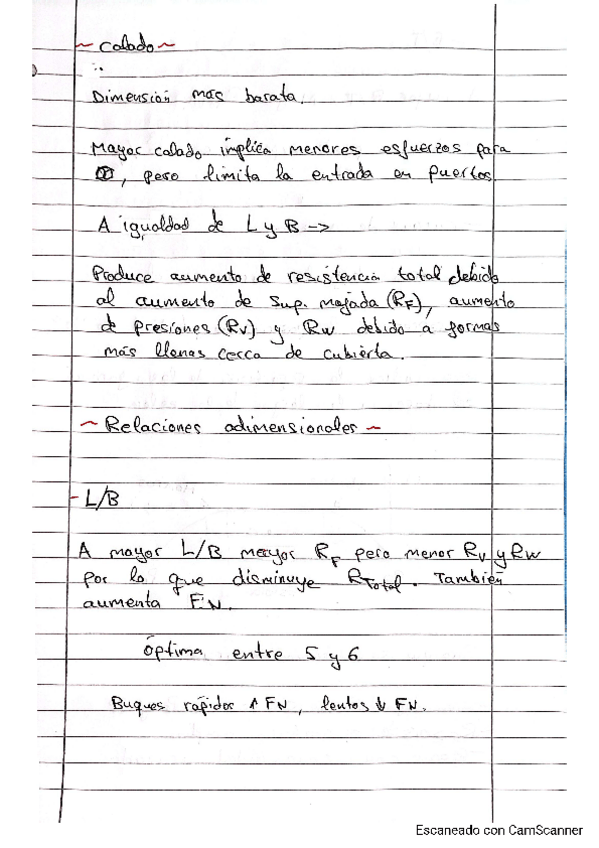 ~ Calado ~
∴
Dimensión más barata.
Mayor calado implica menores esfuerzos para
, pero limita la entrada en puertos
A igualdad de L y B ->
Produce aumento de resistencia total debido
al aumento de sup. mojada (RF), aumento
de presiones (Rv) y Rw debido a formas
más llenas cerca de cubierta.
~ Relaciones adimensionales ~
- L/B
A mayor L/B mayor RF pero menor Rv y Rw
por lo que disminuye RTotal. También
aumenta FN.
Óptima entre 5 y 6
Buques rápidos ↑ FN, lentos ↓ FN.
Escaneado con CamScanner